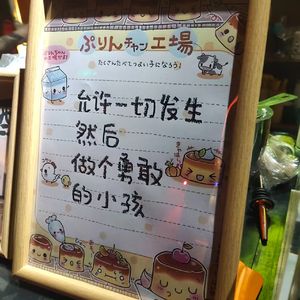 ぷりんチャン工場
たくさんたべてつよい子になろう♪
允许一切发生
然后
做个勇敢
的小孩